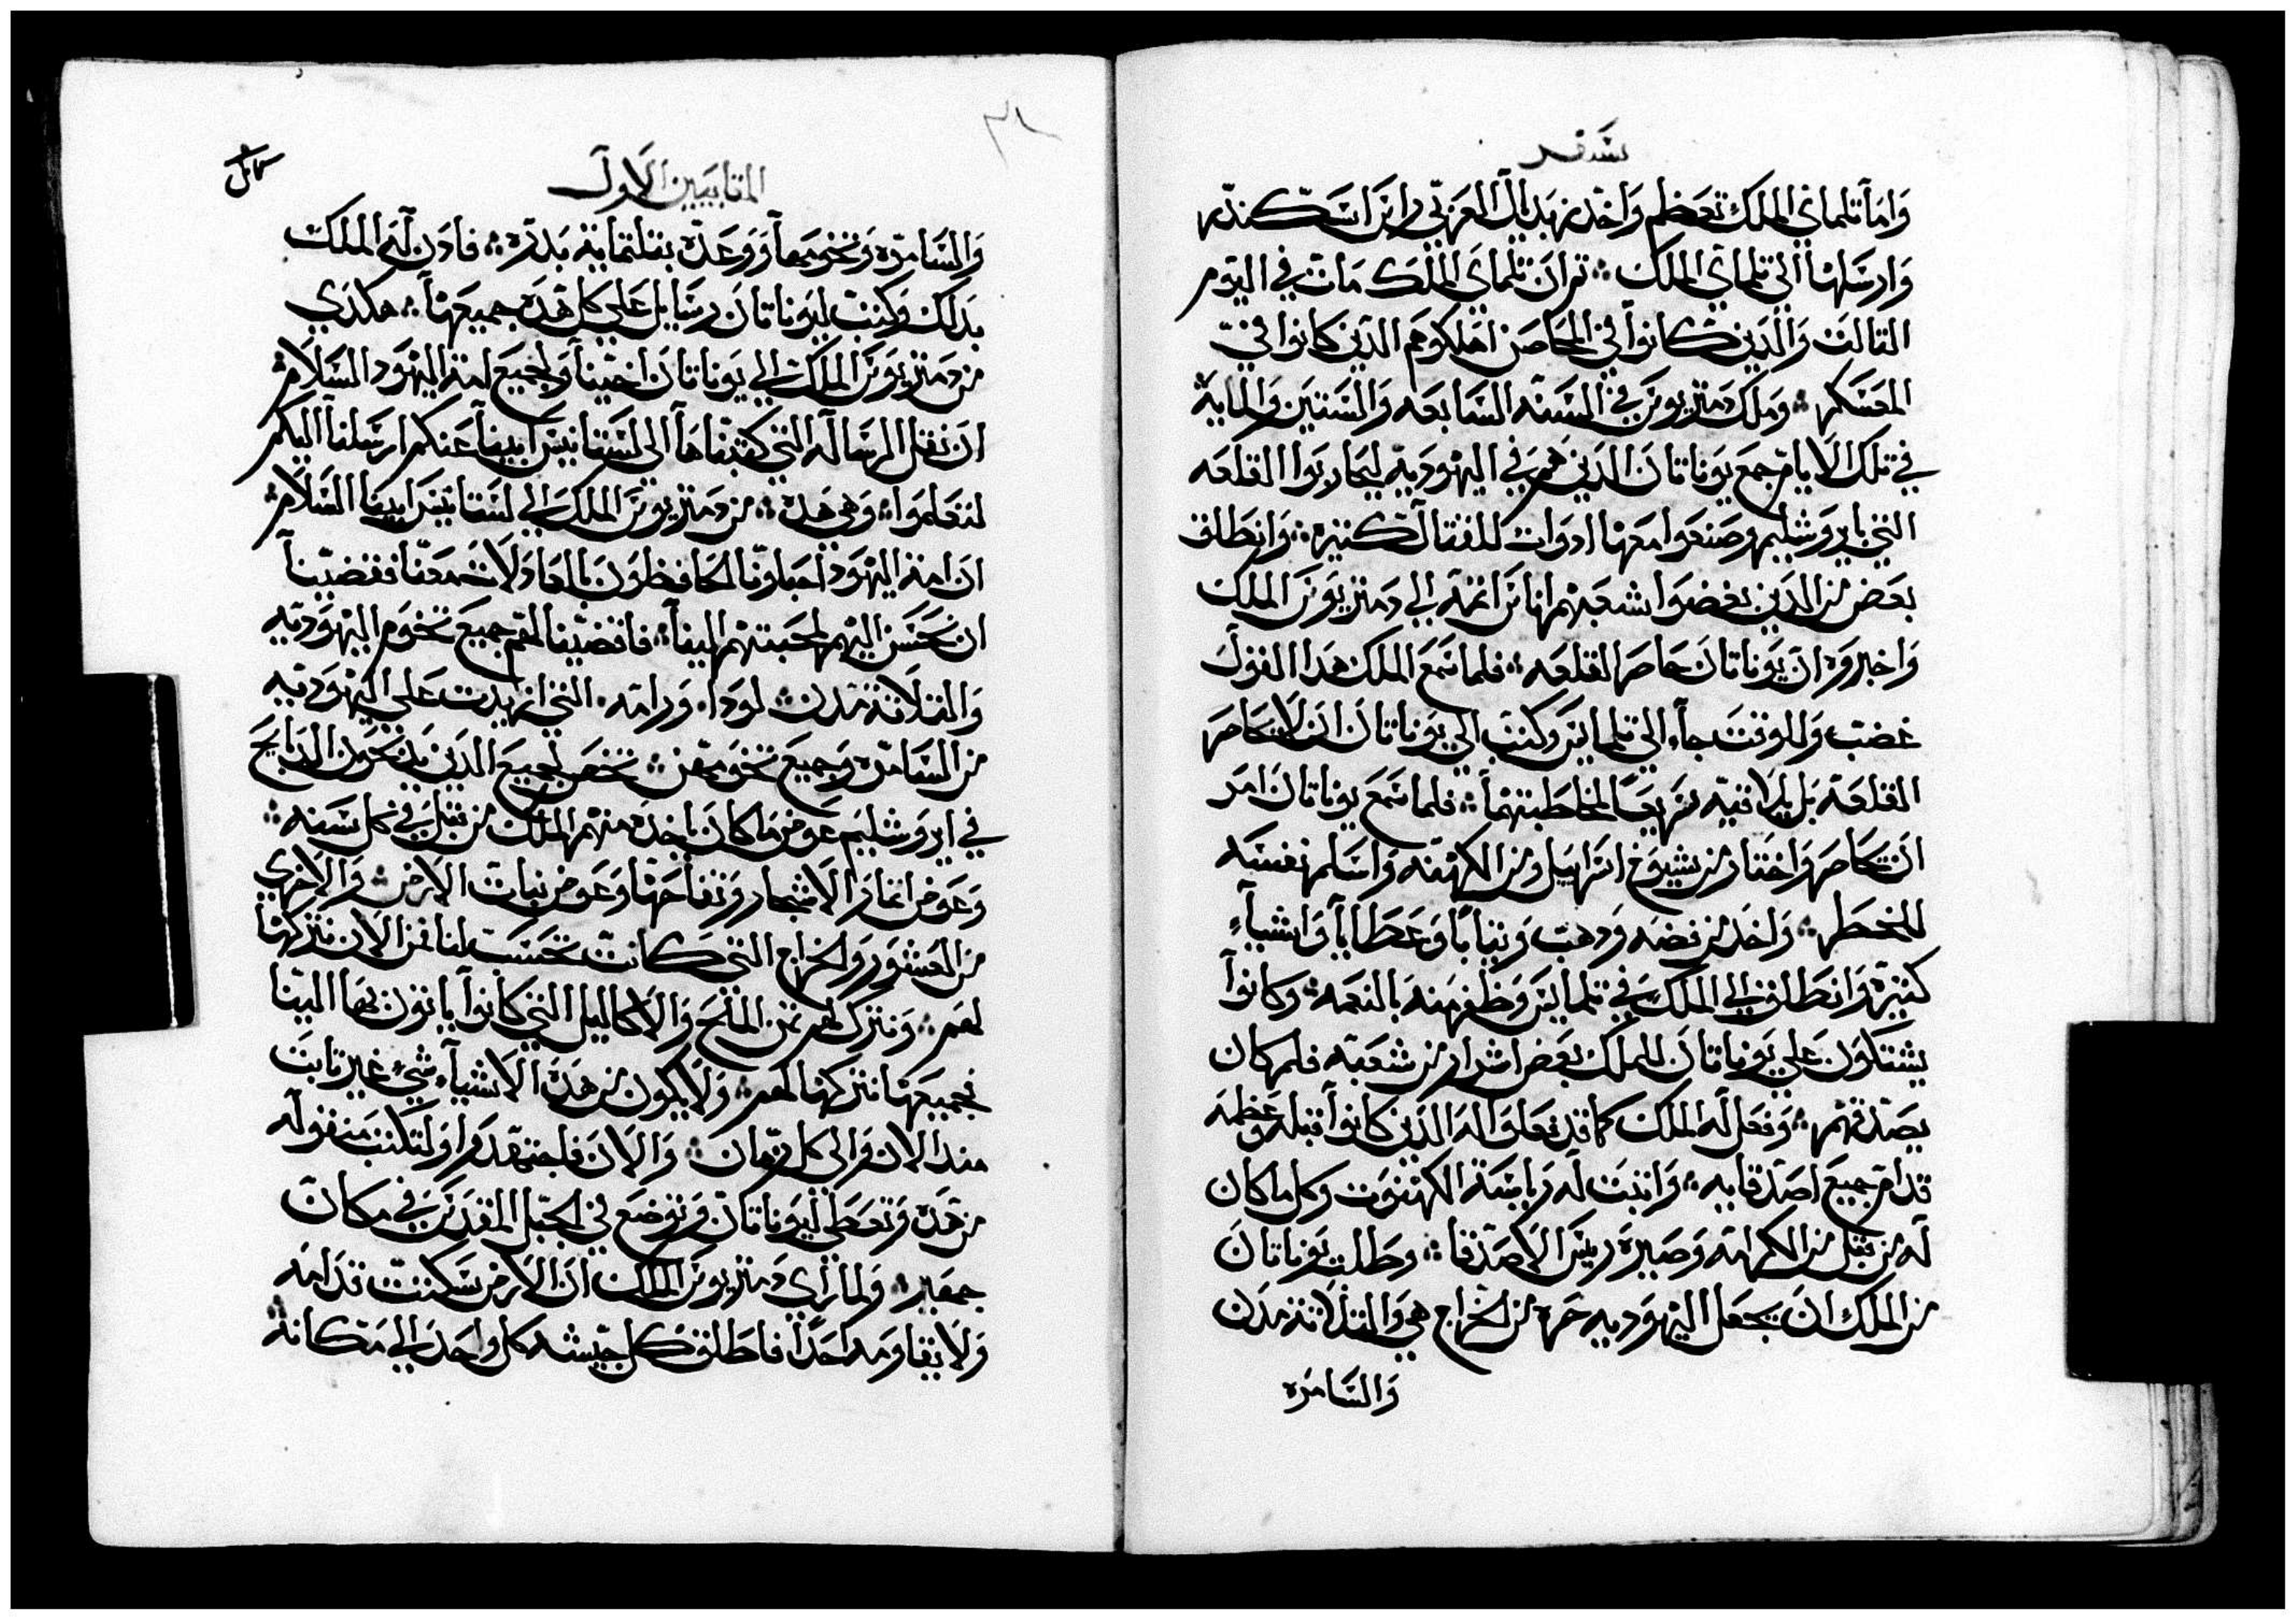 سفر
واما تلماي الملك تعظم واخد زبديال العربي راس اسكندر
وارسلها الى تلماي الملك ܀ تم ان تلماي الملك مات في اليوم
التالت والدين كانوا في المحاصن اهلكوهم الدين كانوا في
المعسكر ܀ وملك دمتريوس في السنه السابعه والستين والمايه
في تلك الايام جمع يوناتان الدين هم في اليهوديه ليحاربوا القلعه
التي بايروشليم وصنعوا معها ادوات للقتال كتيره ܀ وانطلق
بعض من الدين بغضوا شعبهم اناس اتمه الي دمتريوس الملك
واخبروه ان يوناتان حاصر القلعه ܀ فلما سمع الملك هدا القول
غضب وللوقت جاء الي تلمايس وكتب الي يوناتان ان لا يحاصر
القلعه بل يلاقيه سريعا لمخاطبتهما ܀ فلما سمع يوناتان امر
ان تحاصر واختار من شيوخ اسراييل ومن الكهنه واسلم نفسه
للخطر ܀ واخد من فضه ودهب وتيابا وعطايا واشياء
كتيره وانطلق الي الملك في تلمايس وظفر منه بالنعمه ܀ وكانوا
يشتكون علي يوناتان للملك بعض اشرار من شعبه فلم كان
يصدقهم ܀ وفعل له الملك كما قد فعلوا له الدين كانوا قبله وعظمه
قدام جميع اصدقايه ܀ واتبت له رياسة الكهنوت وكل ما كان
له من قبل من الكرامه وصيره ريس الاصدقا ܀ وطلب يوناتان
من الملك ان يجعل اليهوديه حره من الخراج هي والتلاتة مدن
والسامره
المقابيين الاول
والسامره وتخومها ووعده بتلتماية بدره ܀ فادن له الملك
بدلك وكتب ليوناتان رسايل علي كل هده جميعها ܀ هكدي
من دمتريوس الملك الي يوناتان اخينا ولجميع امة اليهود السلام
ان نقل الرساله التي كتبناها الى لستانيس ابينا عنكم ارسلنا اليكم
لتعلموا ܀ وهي هده ܀ من دمتريوس الملك الي لستانيس ابينا السلام
ان امة اليهود احباونا الحافظون بالعادلات معنا فقضينا
ان نحسن اليهم لمحبتهم الينا ܀ فاقضينا لهم جميع تخوم اليهوديه
والتلاتة مدن ܀ لودا ورامه التي ازيدت علي اليهوديه
من السامره وجميع تخومهن ܀ تخص لجميع الدين يدبحون الدبايح
في ايروشليم عوض ما كان ياخده منهم الملك من قبل في كل سنه ܀
وعوض اتمار الاشجار وتفاحها وعوض نبات الارض ܀ والاخري
من العشور والخراج التي كانت تحسب لنا فمن الان نتركها
لهم ܀ ونترك لهم تمن الملح والاكاليل التي كانوا ياتون بها الينا
فجميعها نتركها لهم ܀ ولا يكون من هده الاشياء شيء غير تابت
مند الان والى كل زمان ܀ والان فاجتهدوا ولتكتب منقوله
من هده وتعطي ليوناتان وتوضع في الجبل المقدس في مكان
جهير ܀ ولما راي دمتريوس الملك ان الارض سكنت قدامه
ولا يقاومه احدا فاطلق كل جيشه كل واحد الي مكانه